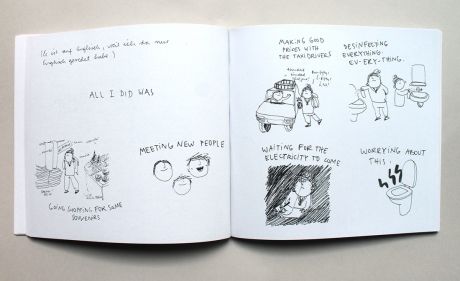 (Es ist auf Englisch, weil ich da nur
Englisch geredet habe)
ALL I DID WAS
GOING SHOPPING FOR SOME
SOUVENIRS
MEETING NEW PEOPLE
MAKING GOOD
PRICES WITH
THE TAXIDRIVERS
DESINFECTING
EVERYTHING.
EV-ERY-THING.
WAITING FOR THE
ELECTRICITY TO COME
WORRYING ABOUT
THIS.